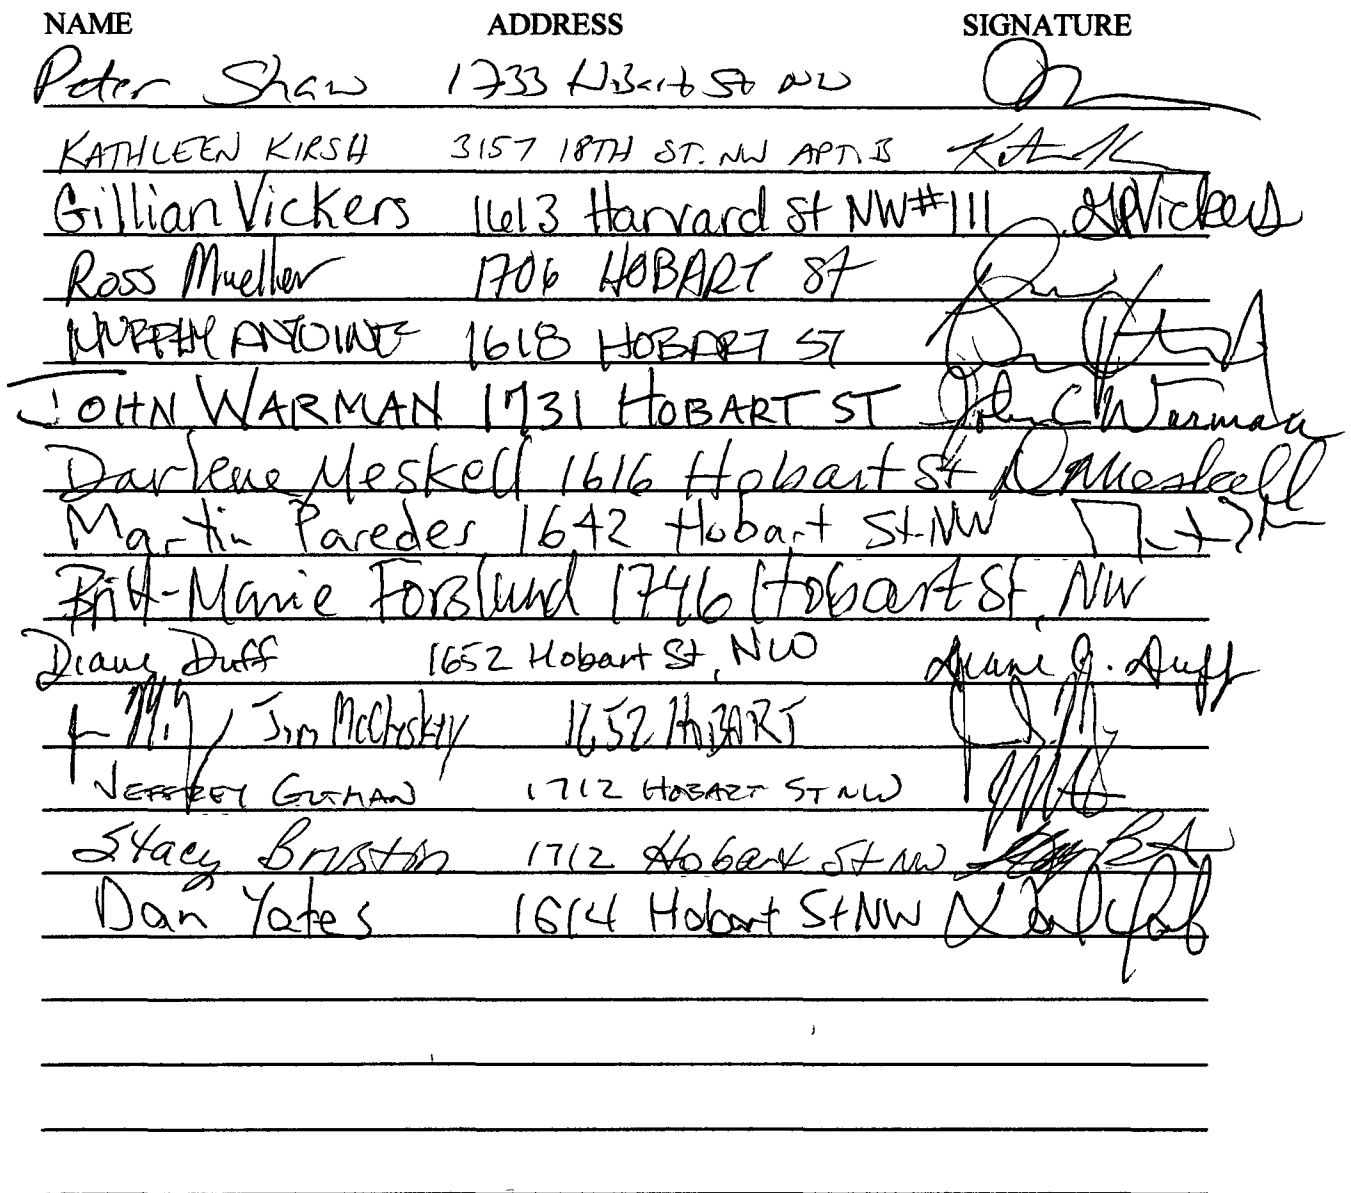 NAME ADDRESS SIGNATURE
Peter Shaw 1733 Hobart St NW
KATHLEEN KIRSH 3157 18TH ST. NW APT. B
Gillian Vickers 1613 Harvard St NW #111 GPVickers
Ross Mueller 1706 HOBART St
MURPHY ANTOINE 1618 HOBART ST
JOHN WARMAN 1731 HOBART ST John C Warman
Darlene Meskell 1616 Hobart St DMeskell
Martin Paredes 1642 Hobart St NW
Britt-Marie Forslund 1746 Hobart St, NW
Diane Duff 1652 Hobart St, NW Diane J. Duff
Jim McCloskey 1652 HOBART
JEFFREY GUTMAN 1712 HOBART ST NW
Stacy Brustin 1712 Hobart St NW
Dan Yates 1614 Hobart St NW